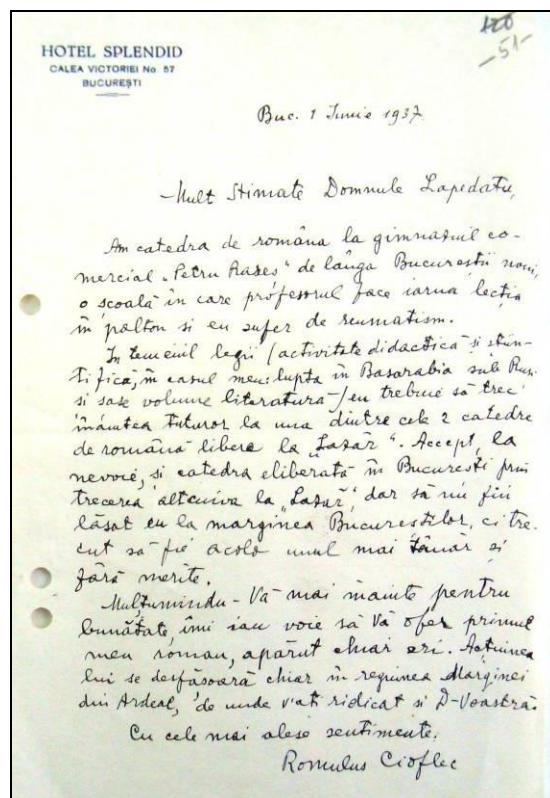 120
-51-
HOTEL SPLENDID
CALEA VICTORIEI No 57
BUCUREȘTI
Buc. 1 Iunie 1937.
Mult Stimate Domnule Lapedatu,
Am catedra de româna la gimnaziul co-
mercial „Petru Rareș" de lânga Bucureștii noui,
o școală în care profesorul face iarna lecția
în palton si eu sufer de reumatism.
In temeiul legii / activitate didactică și știin-
tifică, în cazul meu: lupta în Basarabia sub Ruși
si șase volume literatura / eu trebuie să trec
înaintea tuturor la una dintre cele 2 catedre
de română libere la „Lazăr". Accept, la
nevoie, si catedra eliberată în Bucuresti prin
trecerea altcuiva la „Lazăr", dar să nu fiu
lăsat eu la marginea Bucurestilor, ci tre-
cut să fie acolo unul mai tânăr si
fără merite.
Mulțumindu-Vă mai înainte pentru
bunătate, îmi iau voie să Vă ofer primul
meu roman, apărut chiar eri. Acțiunea
lui se desfășoară chiar în regiunea Marginei
din Ardeal, de unde v'ati ridicat si D-Voastră.
Cu cele mai alese sentimente,
Romulus Cioflec